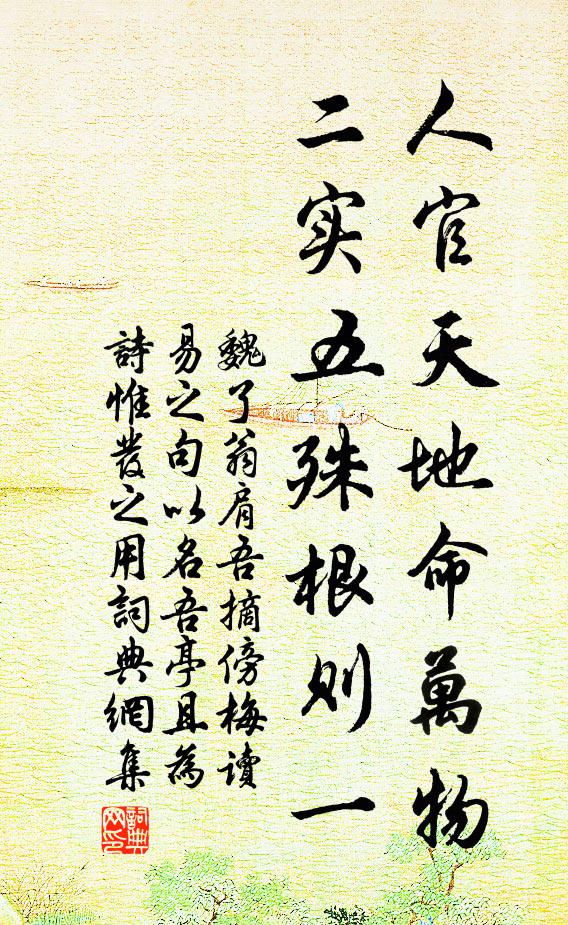 人官天地命萬物
二实五殊根则一
魏了翁肩吾摘傍梅读
易之句以名吾亭且為
詩惟發之用詞典網集
詞典網印